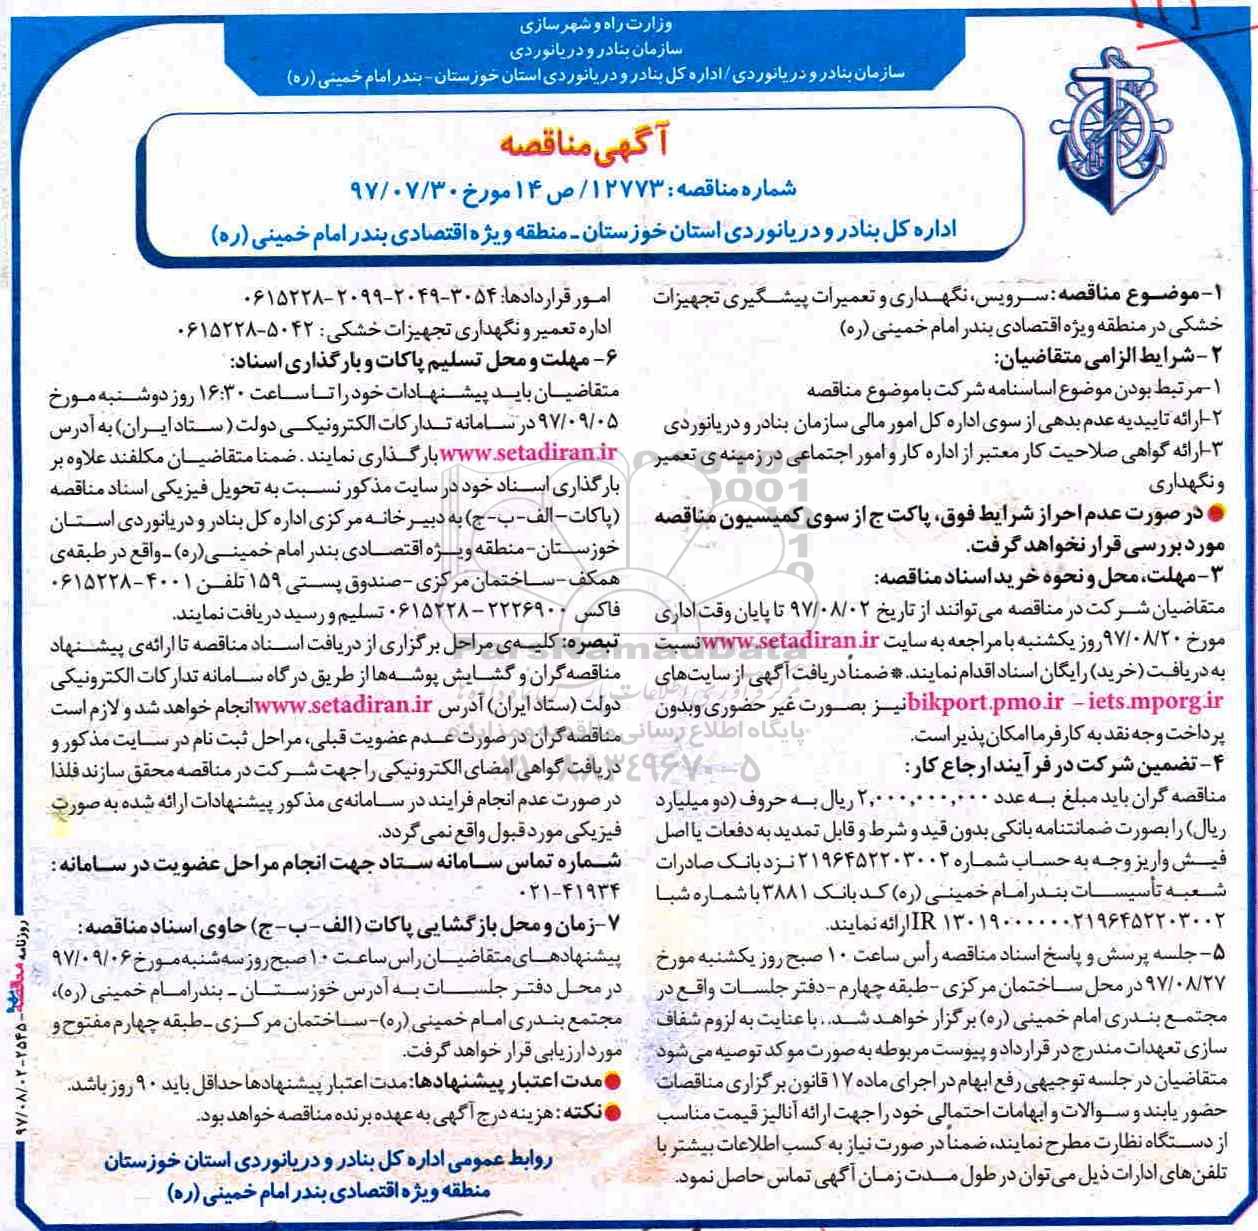 وزارت راه و شهرسازی
سازمان بنادر و دریانوردی
سازمان بنادر و دریانوردی / اداره کل بنادر و دریانوردی استان خوزستان - بندر امام خمینی (ره)
آگهی مناقصه
شماره مناقصه: ۱۲۷۷۳/ ص ۱۴ مورخ ۹۷/۰۷/۳۰
اداره کل بنادر و دریانوردی استان خوزستان - منطقه ویژه اقتصادی بندر امام خمینی (ره)
۱-موضوع مناقصه: سرویس، نگهداری و تعمیرات پیشگیری تجهیزات
خشکی در منطقه ویژه اقتصادی بندر امام خمینی (ره)
۲-شرایط الزامی متقاضیان:
۱-مرتبط بودن موضوع اساسنامه شرکت با موضوع مناقصه
۲-ارائه تاییدیه عدم بدهی از سوی اداره کل امور مالی سازمان بنادر و دریانوردی
۳-ارائه گواهی صلاحیت کار معتبر از اداره کار و امور اجتماعی در زمینه ی تعمیر
و نگهداری
در صورت عدم احراز شرایط فوق، پاکت ج از سوی کمیسیون مناقصه
مورد بررسی قرار نخواهد گرفت.
۳-مهلت، محل و نحوه خرید اسناد مناقصه:
متقاضیان شرکت در مناقصه می‌توانند از تاریخ ۹۷/۰۸/۰۲ تا پایان وقت اداری
مورخ ۹۷/۰۸/۲۰ روز یکشنبه با مراجعه به سایت www.setadiran.ir نسبت
به دریافت (خرید) رایگان اسناد اقدام نمایند.* ضمناً دریافت آگهی از سایت‌های
bikport.pmo.ir – iets.mporg.ir نیز بصورت غیر حضوری و بدون
پرداخت وجه نقد به کارفرما امکان پذیر است.
۴- تضمین شرکت در فرآیند ارجاع کار:
مناقصه گران باید مبلغ به عدد ۲,۰۰۰,۰۰۰,۰۰۰ ریال به حروف (دو میلیارد
ریال) را بصورت ضمانتنامه بانکی بدون قید و شرط و قابل تمدید به دفعات یا اصل
فیش واریز وجه به حساب شماره ۲۱۹۶۴۵۲۲۰۳۰۰۲ نزد بانک صادرات
شعبه تأسیسات بندر امام خمینی (ره) کد بانک ۳۸۸۱ با شماره شبا
IR ۱۳۰۱۹۰۰۰۰۰۰۲۱۹۶۴۵۲۲۰۳۰۰۲ ارائه نمایند.
۵- جلسه پرسش و پاسخ اسناد مناقصه رأس ساعت ۱۰ صبح روز یکشنبه مورخ
۹۷/۰۸/۲۷ در محل ساختمان مرکزی -طبقه چهارم -دفتر جلسات واقع در
مجتمع بندری امام خمینی (ره) برگزار خواهد شد. با عنایت به لزوم شفاف
سازی تعهدات مندرج در قرارداد و پیوست مربوطه به صورت موکد توصیه می‌شود
متقاضیان در جلسه توجیهی رفع ابهام در اجرای ماده ۱۷ قانون برگزاری مناقصات
حضور یابند و سوالات و ابهامات احتمالی خود را جهت ارائه آنالیز قیمت مناسب
از دستگاه نظارت مطرح نمایند، ضمناً در صورت نیاز به کسب اطلاعات بیشتر با
تلفن‌های ادارات ذیل می‌توان در طول مدت زمان آگهی تماس حاصل نمود.
امور قراردادها: ۳۰۵۴-۲۰۴۹-۲۰۹۹-۰۶۱۵۲۲۸
اداره تعمیر و نگهداری تجهیزات خشکی : ۵۰۴۲-۰۶۱۵۲۲۸
۶- مهلت و محل تسلیم پاکات و بارگذاری اسناد:
متقاضیان باید پیشنهادات خود را تا ساعت ۱۶:۳۰ روز دوشنبه مورخ
۹۷/۰۹/۰۵ در سامانه تدارکات الکترونیکی دولت ( ستاد ایران) به آدرس
www.setadiran.ir بارگذاری نمایند . ضمنا متقاضیان مکلفند علاوه بر
بارگذاری اسناد خود در سایت مذکور نسبت به تحویل فیزیکی اسناد مناقصه
(پاکات-الف-ب-ج) به دبیرخانه مرکزی اداره کل بنادر و دریانوردی استان
خوزستان-منطقه ویژه اقتصادی بندر امام خمینی(ره) -واقع در طبقه‌ی
همکف-ساختمان مرکزی -صندوق پستی ۱۵۹ تلفن ۴۰۰۱-۰۶۱۵۲۲۸
فاکس ۲۲۲۶۹۰۰-۰۶۱۵۲۲۸ تسلیم و رسید دریافت نمایند.
تبصره: کلیه‌ی مراحل برگزاری از دریافت اسناد مناقصه تا ارائه‌ی پیشنهاد
مناقصه گران و گشایش پوشه‌ها از طریق درگاه سامانه تدارکات الکترونیکی
دولت (ستاد ایران) آدرس www.setadiran.ir انجام خواهد شد و لازم است
مناقصه گران در صورت عدم عضویت قبلی، مراحل ثبت نام در سایت مذکور و
دریافت گواهی امضای الکترونیکی را جهت شرکت در مناقصه محقق سازند فلذا
در صورت عدم انجام فرایند در سامانه‌ی مذکور پیشنهادات ارائه شده به صورت
فیزیکی مورد قبول واقع نمی گردد.
شماره تماس سامانه ستاد جهت انجام مراحل عضویت در سامانه :
۰۲۱-۴۱۹۳۴
۷-زمان و محل بازگشایی پاکات (الف-ب-ج) حاوی اسناد مناقصه :
پیشنهادهای متقاضیان راس ساعت ۱۰ صبح روز سه‌شنبه مورخ ۹۷/۰۹/۰۶
در محل دفتر جلسات به آدرس خوزستان - بندر امام خمینی (ره)،
مجتمع بندری امام خمینی (ره)-ساختمان مرکزی -طبقه چهارم مفتوح و
مورد ارزیابی قرار خواهد گرفت.
مدت اعتبار پیشنهادها: مدت اعتبار پیشنهادها حداقل باید ۹۰ روز باشد.
نکته : هزینه درج آگهی به عهده برنده مناقصه خواهد بود.
روابط عمومی اداره کل بنادر و دریانوردی استان خوزستان
منطقه ویژه اقتصادی بندر امام خمینی (ره)
روزنامه مناقصه - ۲۵۴۵ - ۹۷/۰۸/۰۲
ParsNamadData
پایگاه اطلاع رسانی مناقصه و مزایده
۰۲۱-۸۸۳۴۹۶۷۰-۵